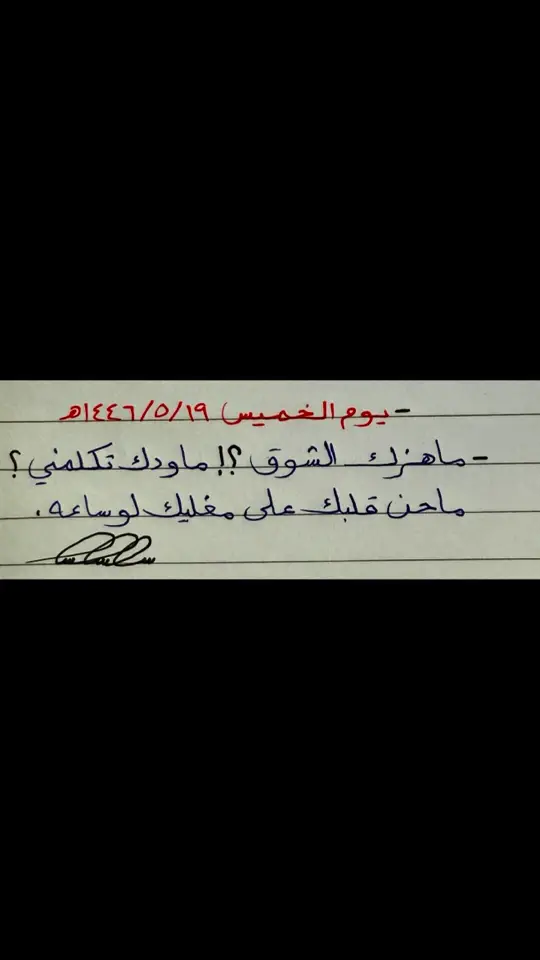 - يوم الخميس ١٤٤٦/٥/١٩هـ
- ماهزك الشوق ؟! ماودك تكلمني ؟
ماحن قلبك على مغليك لوساعه .